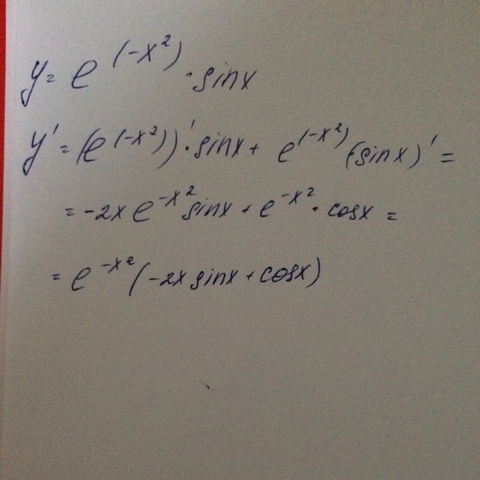 y = e^(-x²) · sinx
y' = (e^(-x²))' · sinx + e^(-x²) (sinx)' =
= -2x e^-x² sinx + e^-x² · cosx =
= e^-x² (-2x sinx + cosx)